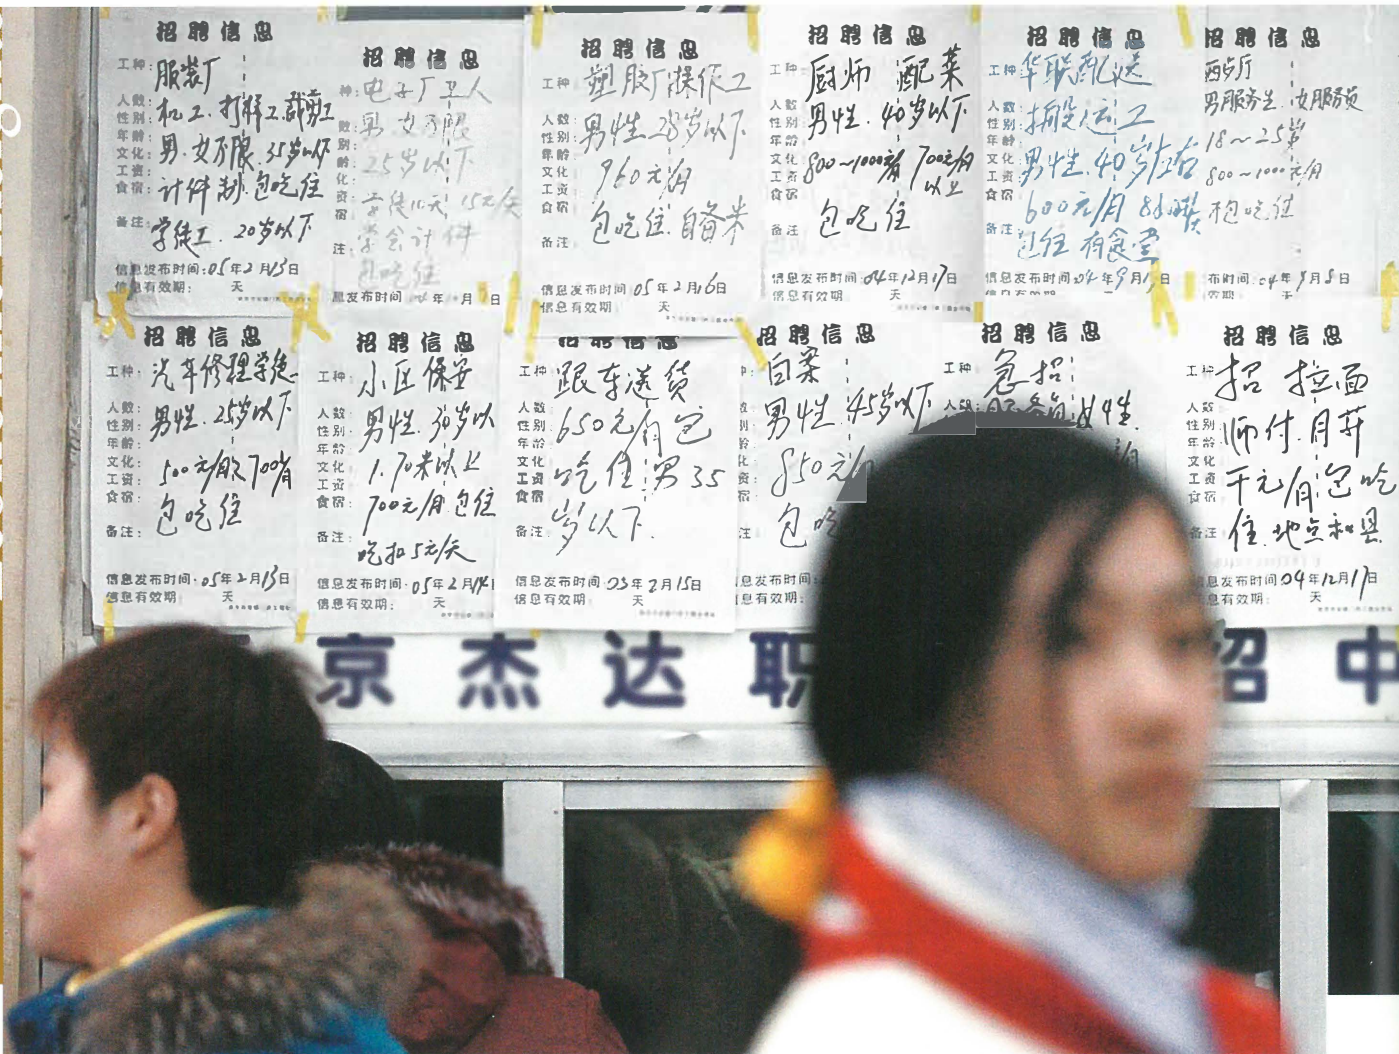 招聘信息
工种: 服装厂
人数: 机工. 打样工. 裁剪工
性别:
年龄: 男.女不限. 35岁以下
文化:
工资: 计件制. 包吃住
食宿:
备注: 学徒工. 20岁以下
信息发布时间: 05年2月13日
信息有效期: 天
招聘信息
种: 电子厂 工人
数: 男 女不限
别:
龄: 25岁以下
化:
资: 学徒10元 15元/天
宿:
注: 学会计件
包吃住
息发布时间 年 月 日
招聘信息
工种: 塑胶厂操作工
人数:
性别: 男性. 28岁以下
年龄
文化: 960元/月
工资:
食宿: 包吃住. 自备米
备注:
信息发布时间: 05年2月16日
信息有效期: 天
招聘信息
工种: 厨师 配菜
人数:
性别: 男性. 40岁以下
年龄:
文化: 800~1000元/月 700元/月
工资: 以上
食宿: 包吃住
备注:
信息发布时间: 04年12月17日
信息有效期: 天
招聘信息
工种: 华联配送
人数:
性别: 搬运工
年龄:
文化: 男性. 40岁左右
工资:
食宿: 600元/月 8小时
备注: 包住 有食堂
信息发布时间: 04年9月1日
信息有效期: 天
招聘信息
西步厅
男服务生. 女服务员
18~25岁
800~1000元/月
包吃住
布时间: 04年9月8日
天
招聘信息
工种: 汽车修理学徒
人数:
性别: 男性. 25岁以下
年龄:
文化:
工资: 500元/月 700/月
食宿: 包吃住
备注:
信息发布时间: 05年2月13日
信息有效期: 天
招聘信息
工种: 小区保安
人数:
性别: 男性. 30岁以
年龄:
文化: 1.70米以上
工资:
食宿: 700元/月 包住
备注: 吃扣5元/天
信息发布时间: 05年2月14日
信息有效期: 天
招聘信息
工种 跟车送货
人数:
性别: 650元/月 包
年龄
文化: 吃住. 男35
工资:
食宿: 岁以下.
备注:
信息发布时间: 03年2月15日
信息有效期: 天
招聘信息
白案
男性. 45岁以下
850元/
包吃
信息发布时间:
信息有效期:
招聘信息
工种: 急招
人数: 服务员 女性.
招聘信息
工种: 招 拉面
人数:
性别: 师付. 月薪
年龄:
文化: 千元/月. 包吃
工资:
食宿: 住. 地点和县
备注:
信息发布时间: 04年12月17日
信息有效期: 天
京杰达职 招中